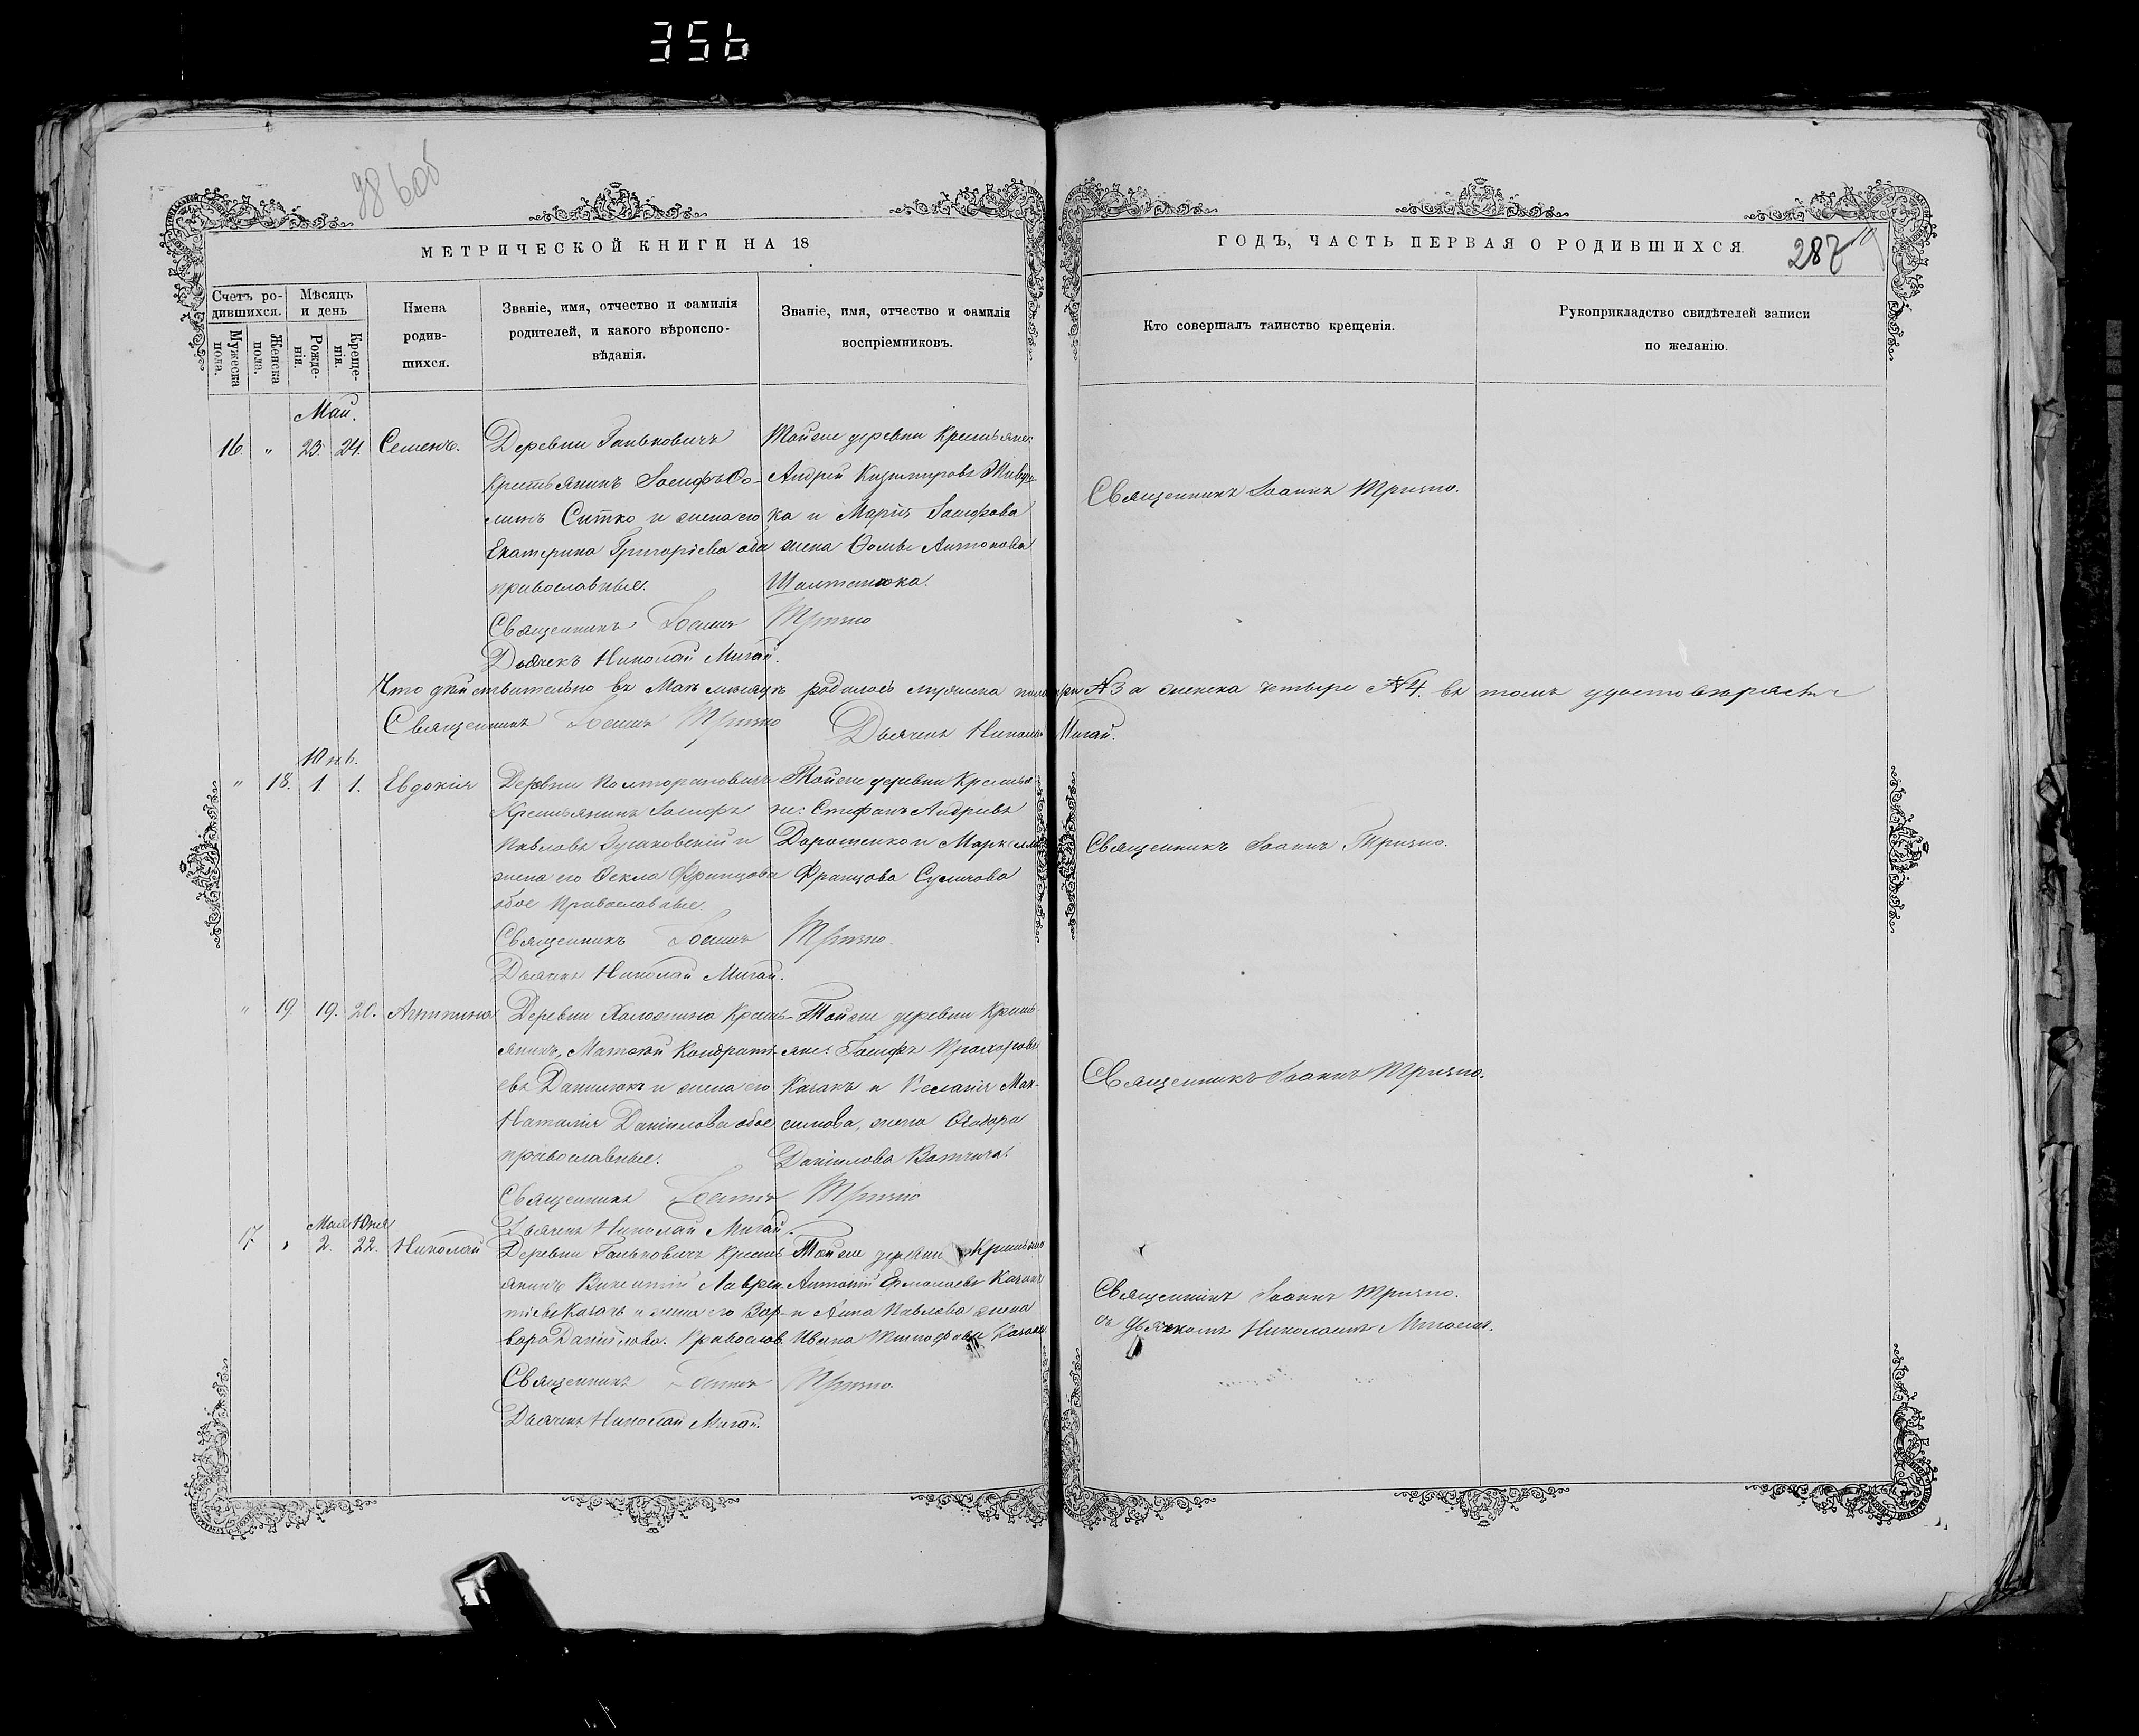 356
98 боб
МЕТРИЧЕСКОЙ КНИГИ НА 18
ГОДЪ, ЧАСТЬ ПЕРВАЯ О РОДИВШИХСЯ
287
Счетъ ро-
дившихся.
Мѣсяцъ
и день
Мужеска
пола.
Женска
пола.
Рожде-
нія.
Креще-
нія.
Имена
родив-
шихся.
Званіе, имя, отчество и фамилія
родителей, и какого вѣроиспо-
вѣданія.
Званіе, имя, отчество и фамилія
воспріемниковъ.
Кто совершалъ таинство крещенія.
Рукоприкладство свидѣтелей записи
по желанію.
Май.
16. " 23. 24. Семенъ.
Деревни Ганьковичъ
Крестьянинъ Іосифъ Ѳо-
минъ Ситко и жена его
Екатерина Григоріева оба
православные.
Священникъ Іоаннъ
Дьячекъ Николай Мигай.
Тойже деревни Крестьяне:
Андрей Казимировъ
ка и Марія Іосифова
жена Ѳомы Антонова
Шолтанюка.
Тризно
Священникъ Іоаннъ Тризно.
Что дѣйствительно въ Маѣ мѣсяцѣ родилось мужеска пола три №3 а женска четыре №4. въ томъ удостовѣряемъ
Священникъ Іоаннъ Тризно Дьячекъ Николай Мигай.
Юнь.
" 18. 1. 1. Евдокія
Деревни Полторановичъ
Крестьянинъ Іосифъ
Павловъ и
жена его Ѳекла Францова
обое Православные.
Священникъ Іоаннъ
Дьячекъ Николай Мигай.
Тойже деревни Крестья-
не: Стефанъ Андреевъ
Дорошенко и
Францова
Тризно.
Священникъ Іоаннъ Тризно.
" 19. 19. 20. Агрипина
Деревни Холожина Кресть-
янинъ, Матвѣй Кондрать-
евъ Данилюкъ и жена его
Наталія Даніилова обое
православные.
Священникъ Іоаннъ
Дьячекъ Николай Мигай.
Тойже деревни Кресть-
яне: Іосифъ Прохоровъ
Казакъ и Пелагія Мак-
симова, жена Ѳеодора
Даніилова
Тризно
Священникъ Іоаннъ Тризно.
Мая Юня
17 " 2. 22. Николай
Деревни Ганьковичъ Кресть-
янинъ Викентій Лаврен-
тіевъ Казакъ и жена его Вар-
вара Даніилова. Православ.
Священникъ Іоаннъ
Дьячекъ Николай Мигай.
Тойже деревни Крестьяне
Антоній Ермолаевъ Казакъ
и Анна Павлова жена
Ивана Тимофеева Казака.
Тризно.
Священникъ Іоаннъ Тризно.
съ дьячкомъ Николаемъ Мигаемъ.